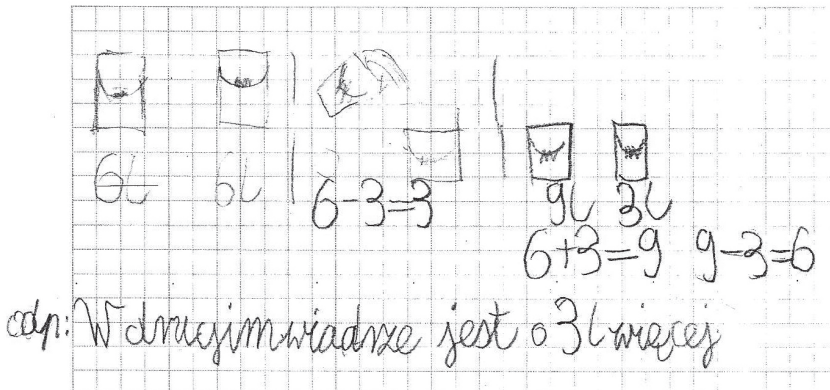 6l 6l
6-3=3
9l 3l
6+3=9 9-3=6
odp: W drugim wiadrze jest o 3l więcej